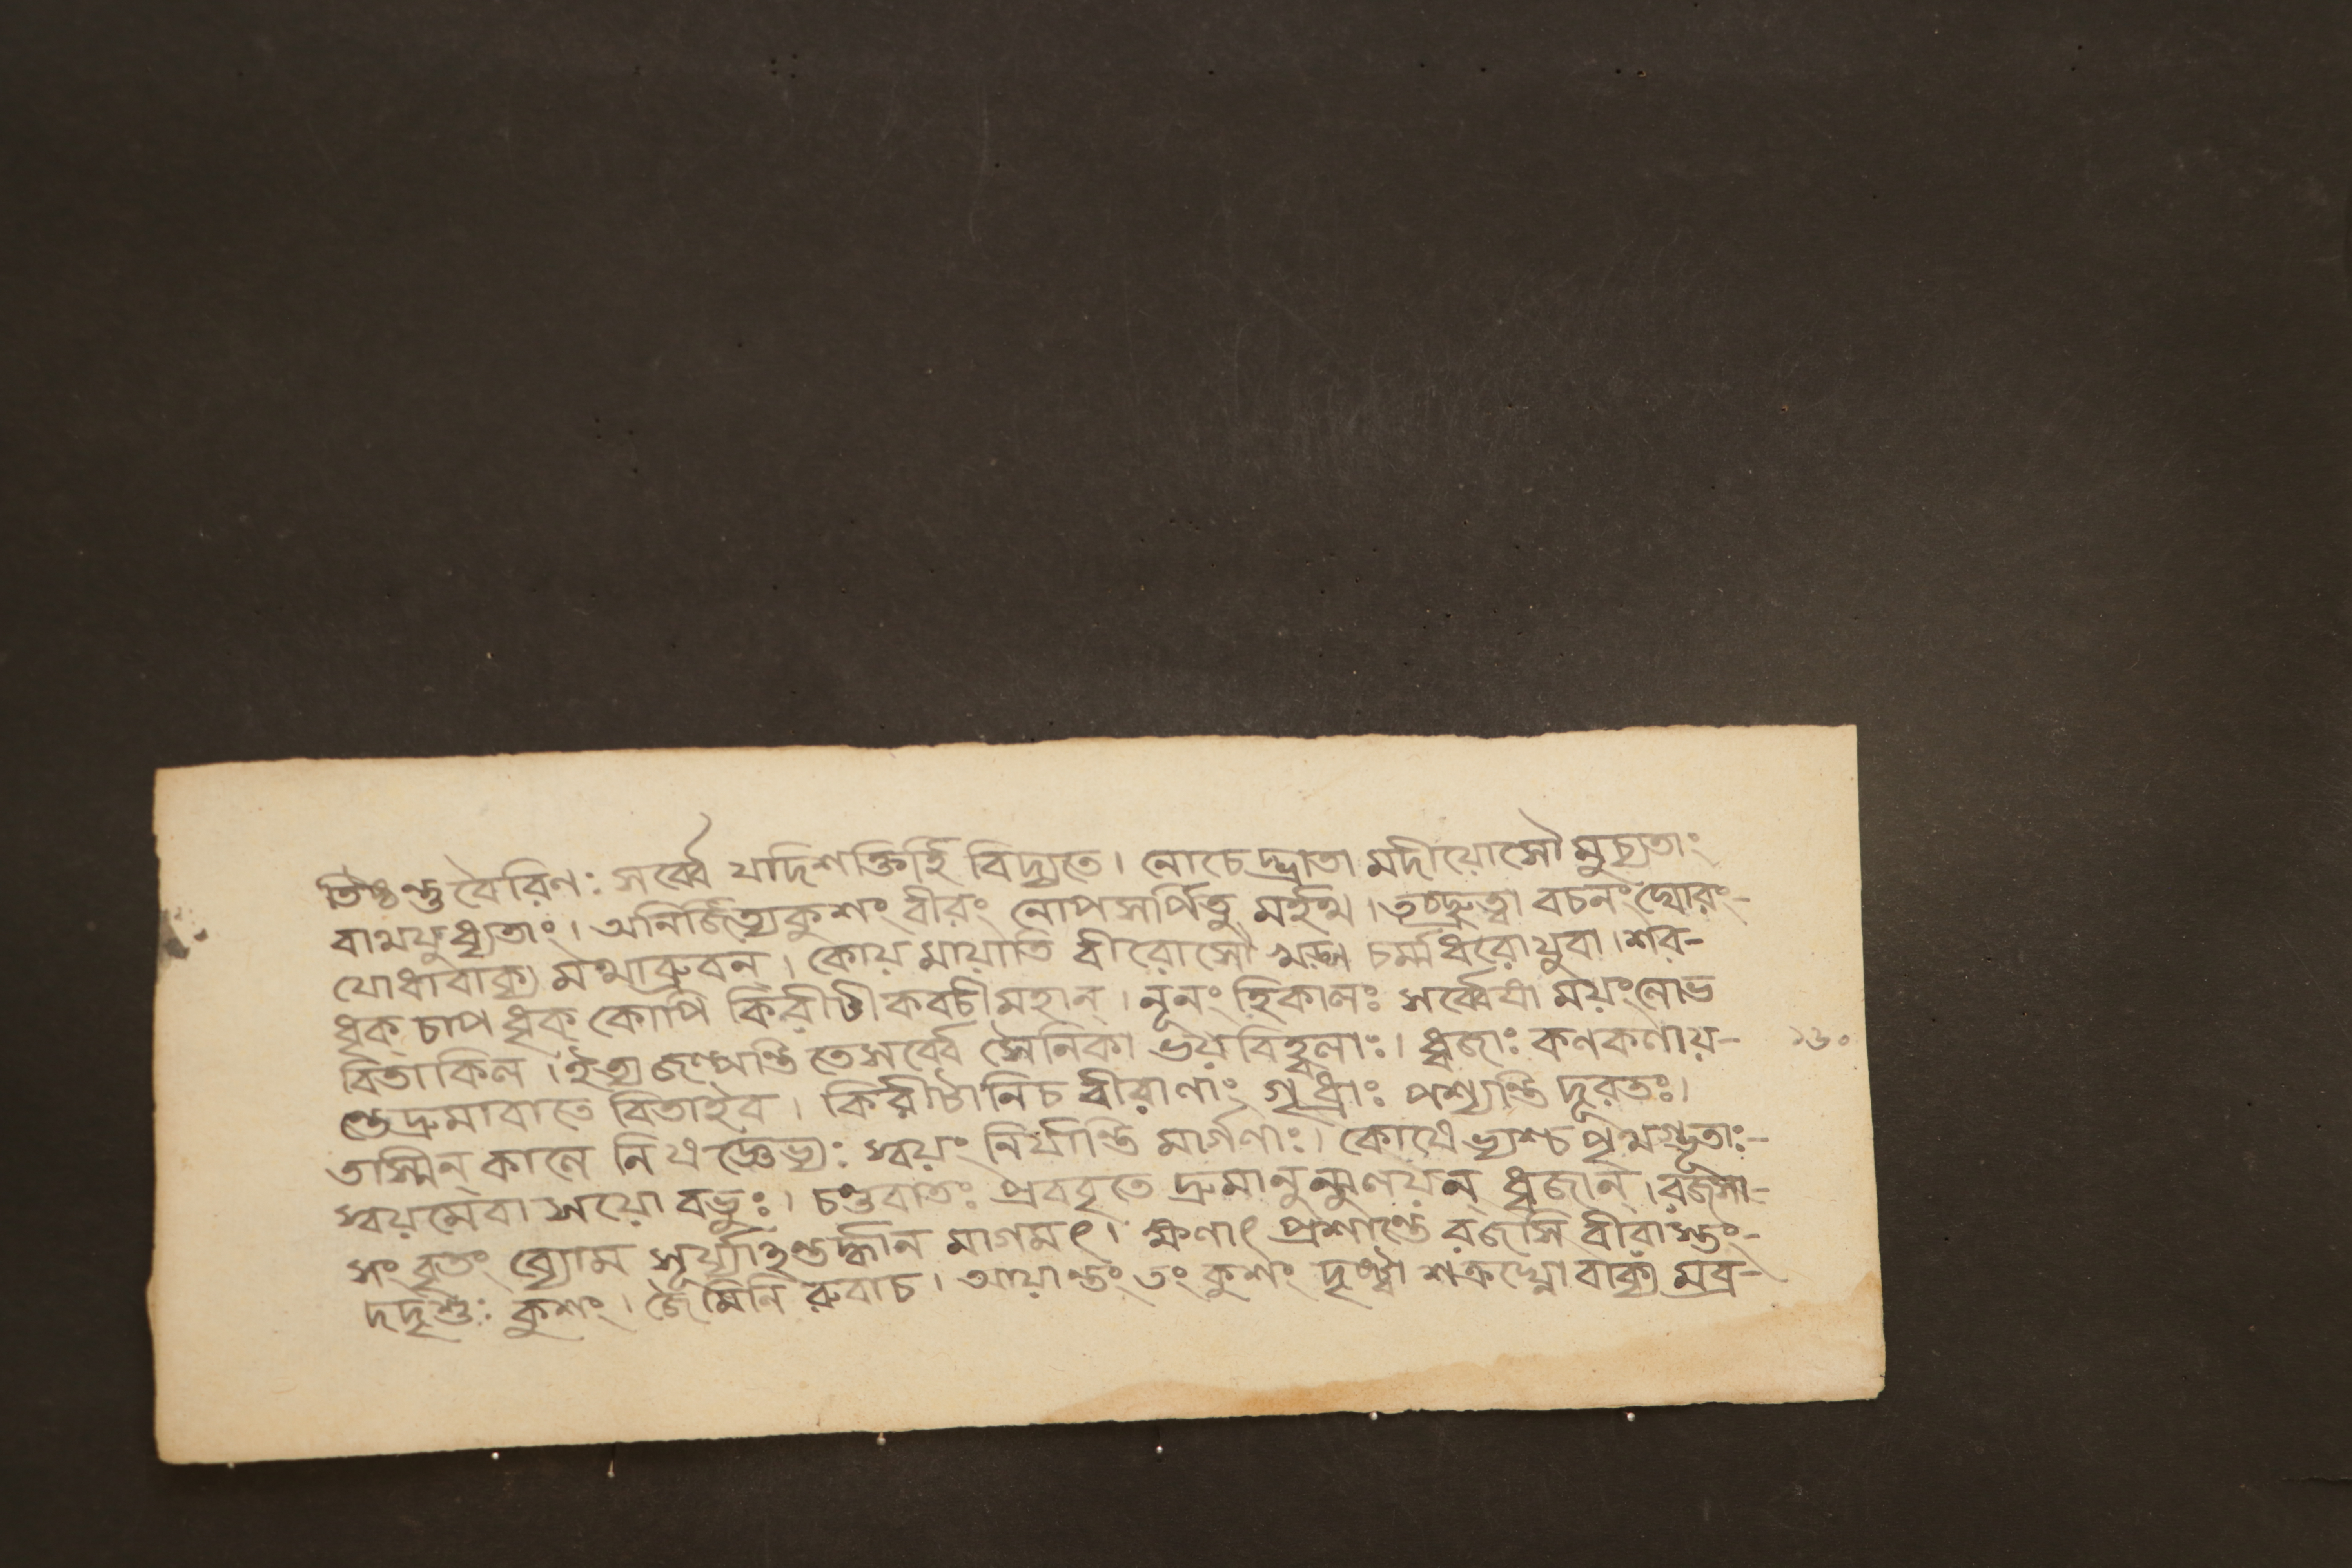 তিষ্ঠন্তু বৈরিণঃ সর্ব্বে যদিশক্তির্হি বিদ্যতে। নোচেদ্ভ্রাতা মদীয়োসৌ মুচ্যতাং
বাথযুধ্যতাং। অনির্জিত্যকুশং বীরং নোপসর্পিতু মর্হথ। তচ্ছ্রুত্বা বচনং ঘোরং-
যোধাবাক্য মথাব্রুবন্। কোয় মায়াতি বীরোসৌ খড়্গ চর্ম্মধরোযুবা। শর-
ধৃক্ চাপ ধৃক্ কোপি কিরীটীকবচীমহান্। নূনং হিকালঃ সর্ব্বেষা ময়ংনোভ
বিতাকিল। ইত্যজল্পন্তি তেসর্ব্বে সৈনিকা ভয়বিহ্বলাঃ। ধ্বজাঃ কণকণায়- ১৩০
ন্তেদ্রুমাবাতে বিতাইব। কিরীটানিচ বীরাণাং গৃধ্রাঃ পশ্যন্তি দূরতঃ।
তাস্মিন্ কালে নিষঙ্গেভ্যঃ স্বয়ং নির্যান্তি মার্গণাঃ। কোষেভ্যশ্চ পৃথগ্ভূতাঃ-
স্বয়মেবা সয়ো বভুঃ। চণ্ডবাতঃ প্রববৃতে দ্রুমানুন্মুলয়ন্ ধ্বজান্। রজসা-
সংবৃতং ব্যোম সূর্য্যোহন্তর্দ্ধান মাগমৎ। ক্ষণাৎ প্রশান্তে রজসি বীরাস্তং-
দদৃশুঃ কুশং। জৈমিনি রুবাচ। আয়ান্তং তং কুশং দৃষ্ট্বা শত্রুঘ্নো বাক্য মব্র-